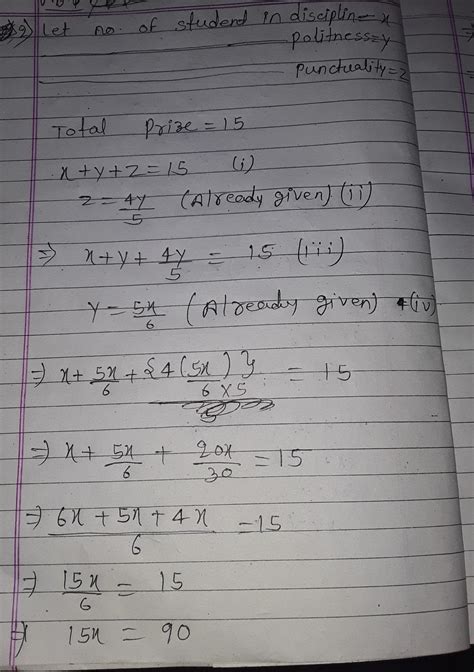 9) Let no. of studend in disciplin=x
politness=y
Punctuality=z
Total Prize = 15
x+y+z=15 (i)
z=4y/5 (Already given) (ii)
⇒ x+y+4y/5 = 15 (iii)
y=5x/6 (Already given) (iv)
⇒ x+5x/6+{4(5x)/6×5} = 15
⇒ x+5x/6+20x/30=15
⇒ 6x+5x+4x/6=15
⇒ 15x/6 = 15
⇒ 15x = 90